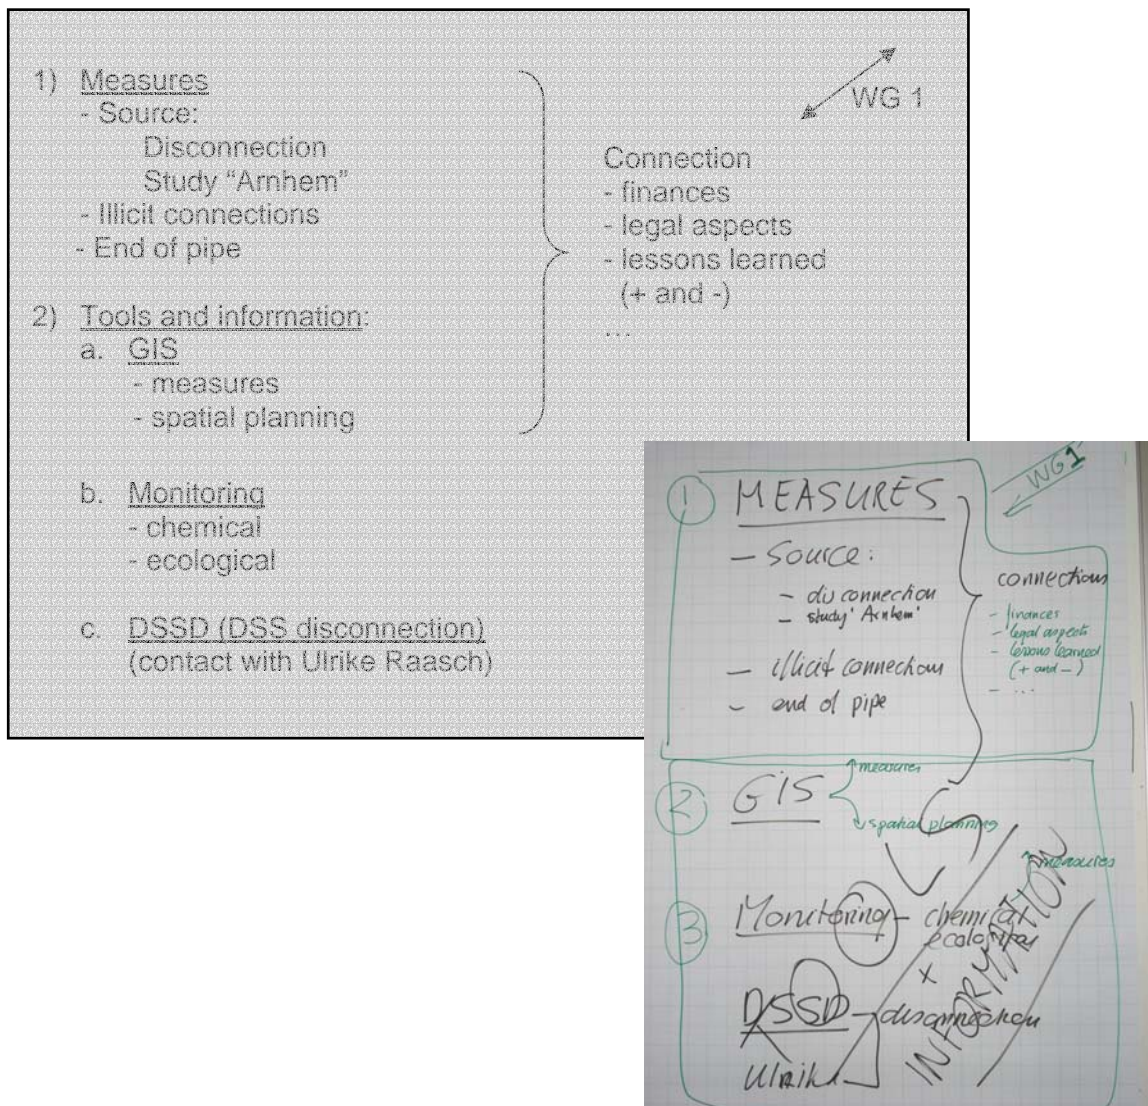 WG 1
1) Measures
- Source:
Disconnection
Study “Arnhem”
- Illicit connections
- End of pipe
2) Tools and information:
a. GIS
- measures
- spatial planning
b. Monitoring
- chemical
- ecological
c. DSSD (DSS disconnection)
(contact with Ulrike Raasch)
Connection
- finances
- legal aspects
- lessons learned
(+ and -)
...
WG1
1 MEASURES
- Source:
- disconnection
- study 'Arnhem'
- illicit connections
- end of pipe
connections
- finances
- legal aspects
- lessons learned
(+ and -)
- ...
2 GIS
measures
spatial planning
3 Monitoring - chemical
ecological
+
measures
DSSD - disconnection
Ulrike
INFORMATION